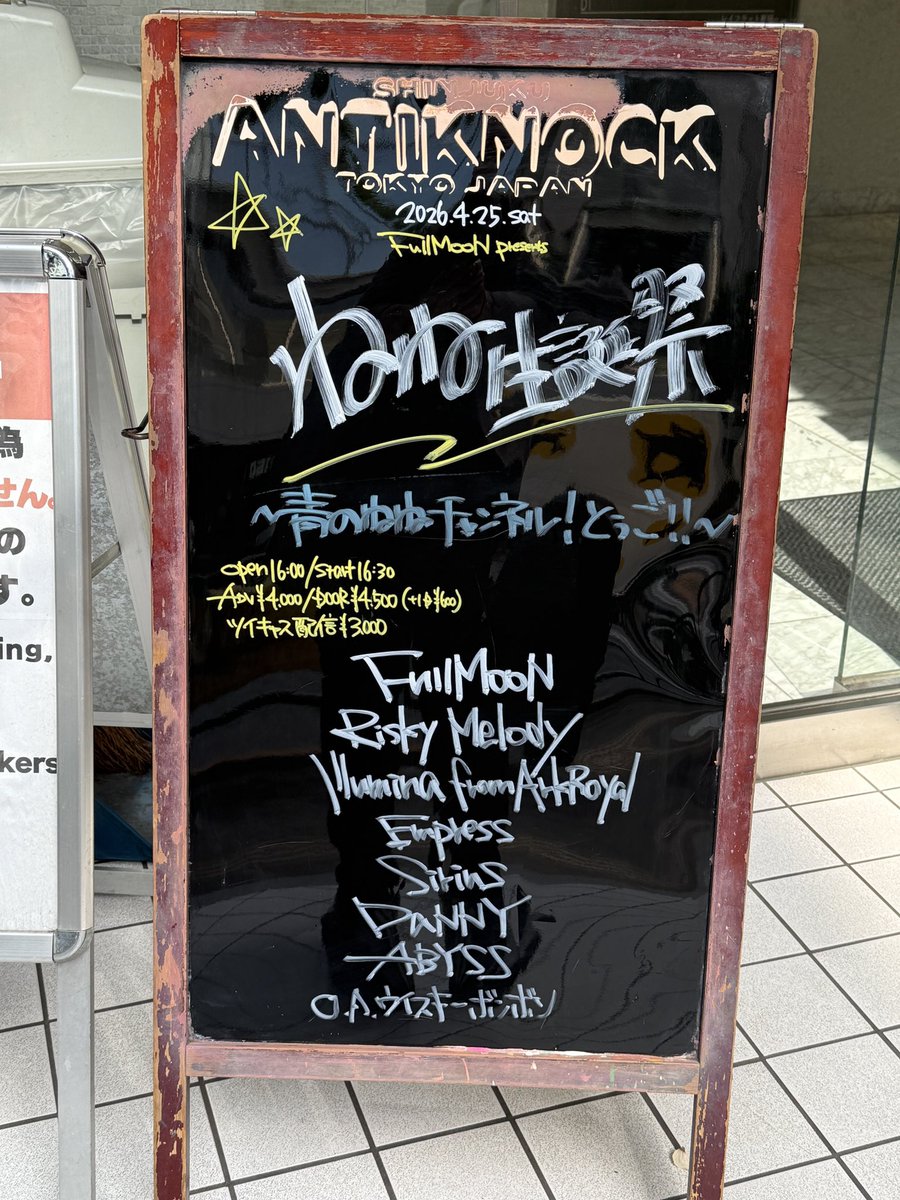 SHINJUKU
ANTIKNOCK
TOKYO JAPAN
2026.4.25.sat
FullMooN presents
ねね生誕祭
～青のねねチャンネル!とぅご!!～
open16:00/start16:30
ADV¥4.000/DOOR¥4.500(+1D¥600)
ツイキャス配信¥3.000
FullMooN
Risky Melody
Illumina from ArkRoyal
Empress
Sirius
DaNNY
ABYSS
O.A.ウイスキーボンボン
為
せん。
の
す。
ing,
kers